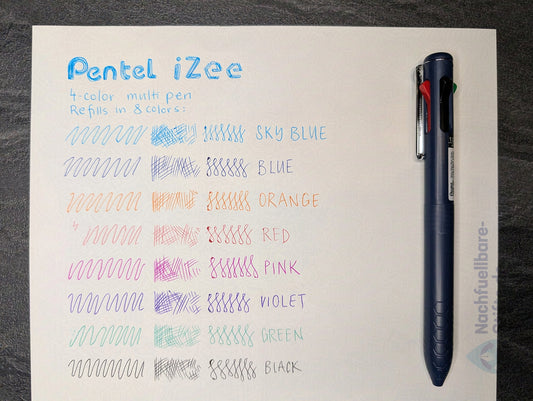 Pentel iZee
4-color multi pen
Refills in 8 colors:
SKY BLUE
BLUE
ORANGE
RED
PINK
VIOLET
GREEN
BLACK
Nachfuellbare-